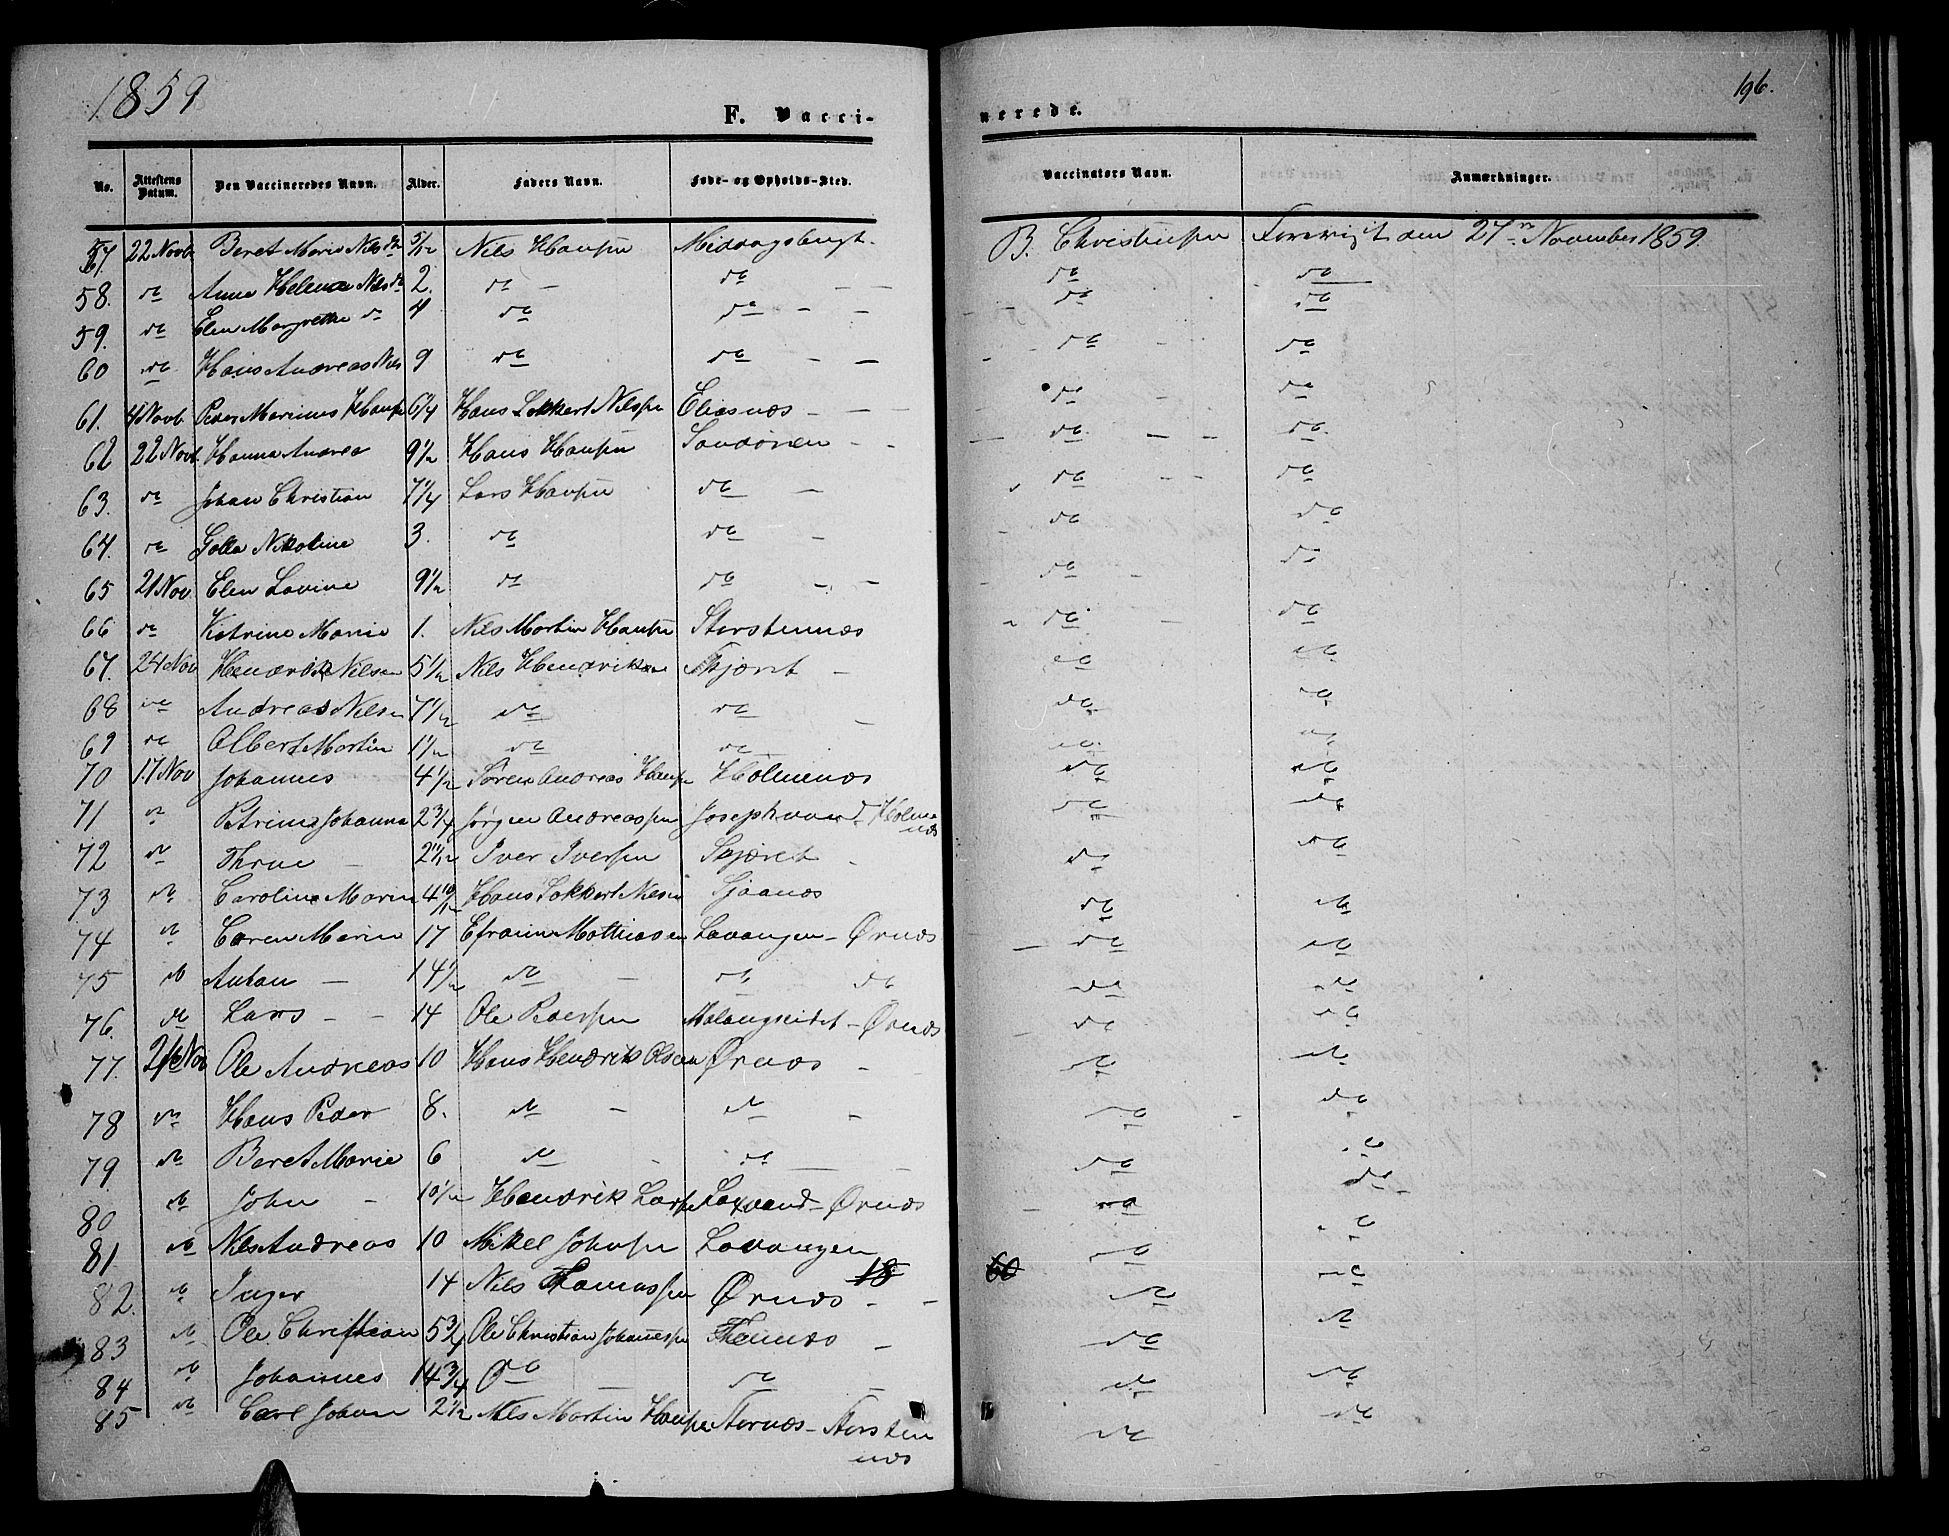 1859
196.
F. Vacci-
nerede.
No. Attestens Datum. Den Vaccineredes Navn. Alder. Faders Navn. Føde- og Opholds-Sted. Vaccinators Navn. Anmærkninger.
57 22 Novb Beret Marie Nilsdr 5/12 Nils Hansen B. Christensen den 27 November 1859.
58. do Anne Helene Nilsd 2. do do do do
59. do Elen Margrethe do 4 do do do do
60 do Hans Andreas Nils 9 do do do do
61. 4 Novb. Peder Marinus Hansen 6 1/4 Hans Nilsen Eliasnæs do do
62 22 Novb Hanna Andrea 9 1/2 Hans Hansen Sandøren do do
63. do Johan Christian 7 1/4 Lars Hansen do do do
64. do Golla Nikoline 3. do do do do
65 21 Nov. Elen Lovine 9 1/2 do do do do
66 do Katrine Marie 1. Nils Martin Hansen Storstennæs do do
67. 24 Nov Hendrik Nilsen 5 1/2 Nils Hendriksen Skjæret do do
68 do Andreas Nilsen 7 1/2 do do do do
69 do Albert Martin 1 1/2 do do do do
70 17 Nov Johannes 4 1/2 Søren Andreas Hansen Holmenæs do do
71 do Petrine Johanna 2 3/4 Jørgen Andreassen Josephvand Holmenæs do do
72 do Thrue 2 1/12 Iver Iversen Skjæret do do
73 do Caroline Marin 4 10/12 Hans Lokkert Nilsen Sjaanæs do do
74 do Caren Marin 17 Efraim Mathiasen Lavangen - Ørnæs do do
75 do Anton 14 1/2 do do do do do
76. do Lars 14 Ole Pedersen Malangseidet - Ørnæs do do
77. Nov Ole Andreas 10 Hans Hendrik Olsen Ørnæs do do
78 do Hans Peder 8. do do do do
79. do Beret Marie 6 do do do do
80 do John 10 1/2 Hendrik Larsen Laxvand - Ørnæs do do
81. do Nils Andreas 10 Mikel Johnsen Lavangen do do
82. do Inger 14 Nils Thomassen Ørnæs 18 60 do do
83 do Ole Christian 5 3/4 Ole Christian Johannessen do do
84 do Johannes 14 3/4 do do do do
85 do Carl Johan 2 1/2 Nils Martin Hansen Stornæs - Storsten
næs do do